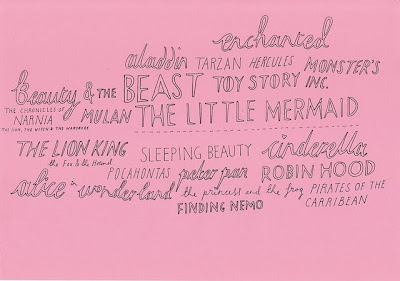 enchanted
aladdin TARZAN HERCULES MONSTER'S INC.
beauty & THE BEAST TOY STORY
THE CHRONICLES OF NARNIA
THE LION, THE WITCH & THE WARDROBE
MULAN THE LITTLE MERMAID
THE LION KING SLEEPING BEAUTY cinderella
the Fox & the Hound
POCAHONTAS peter pan ROBIN HOOD
alice in wonderland the princess and the frog PIRATES OF THE CARRIBEAN
FINDING NEMO